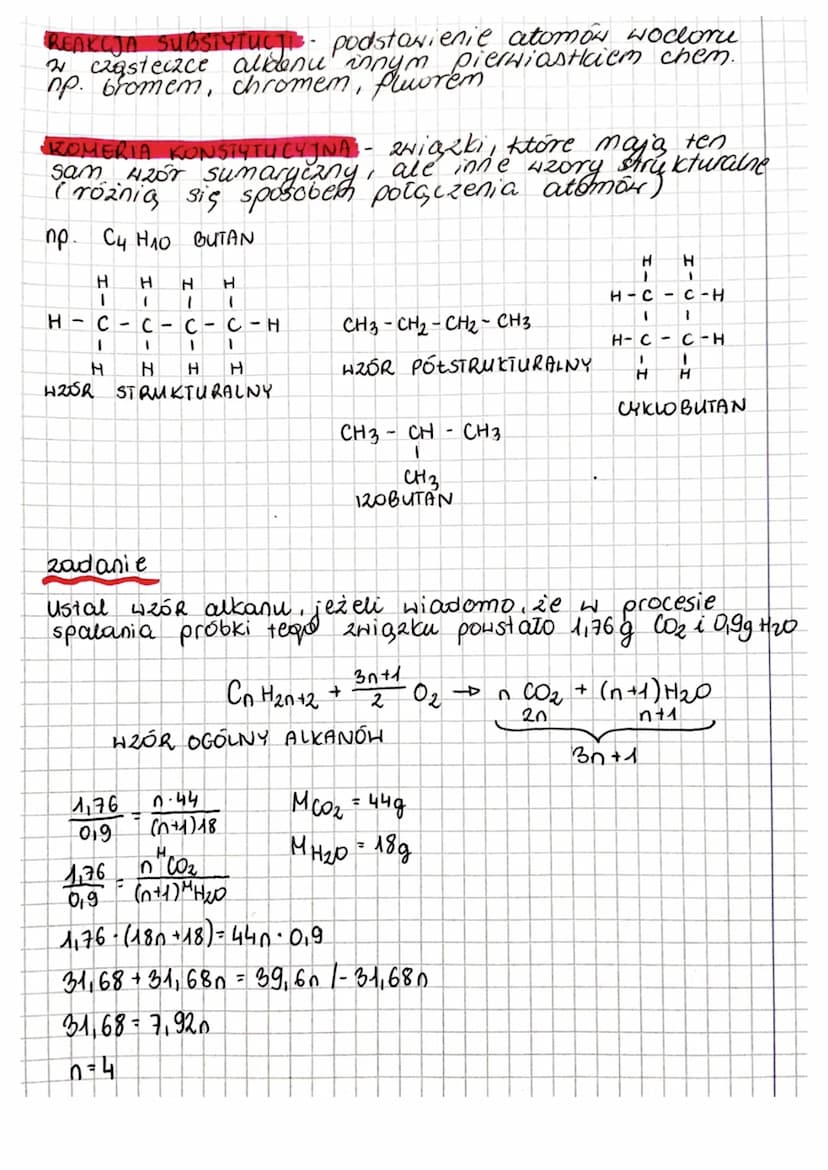 REAKCJA SUBSTYTUCJI - podstawienie atomów wodoru
w cząsteczce alkanu innym pierwiastkiem chem.
np. bromem, chromem, fluorem
IZOMERIA KONSTYTUCYJNA - związki, które mają ten
sam wzór sumaryczny, ale inne wzory strukturalne
(różnią się sposobem połączenia atomów)
np. C4H10 BUTAN
H H H H
H - C - C - C - C - H
H H H H
WZÓR STRUKTURALNY
CH3 - CH2 - CH2 - CH3
WZÓR PÓŁSTRUKTURALNY
H H
H - C - C - H
H - C - C - H
H H
CYKLOBUTAN
CH3 - CH - CH3
CH3
IZOBUTAN
zadanie
Ustal wzór alkanu, jeżeli wiadomo, że w procesie
spalania próbki tego związku powstało 1,76g CO2 i 0,9g H2O
CnH2n+2 + 3n+1/2 O2 → n CO2 + (n+1)H2O
2n n+1
3n+1
WZÓR OGÓLNY ALKANÓW
1,76/0,9 = n·44/(n+1)18
MCO2 = 44g
MH2O = 18g
1,76/0,9 = n MCO2/(n+1)MH2O
1,76·(18n+18)=44n·0,9
31,68+31,68n = 39,6n /-31,68n
31,68=7,92n
n=4